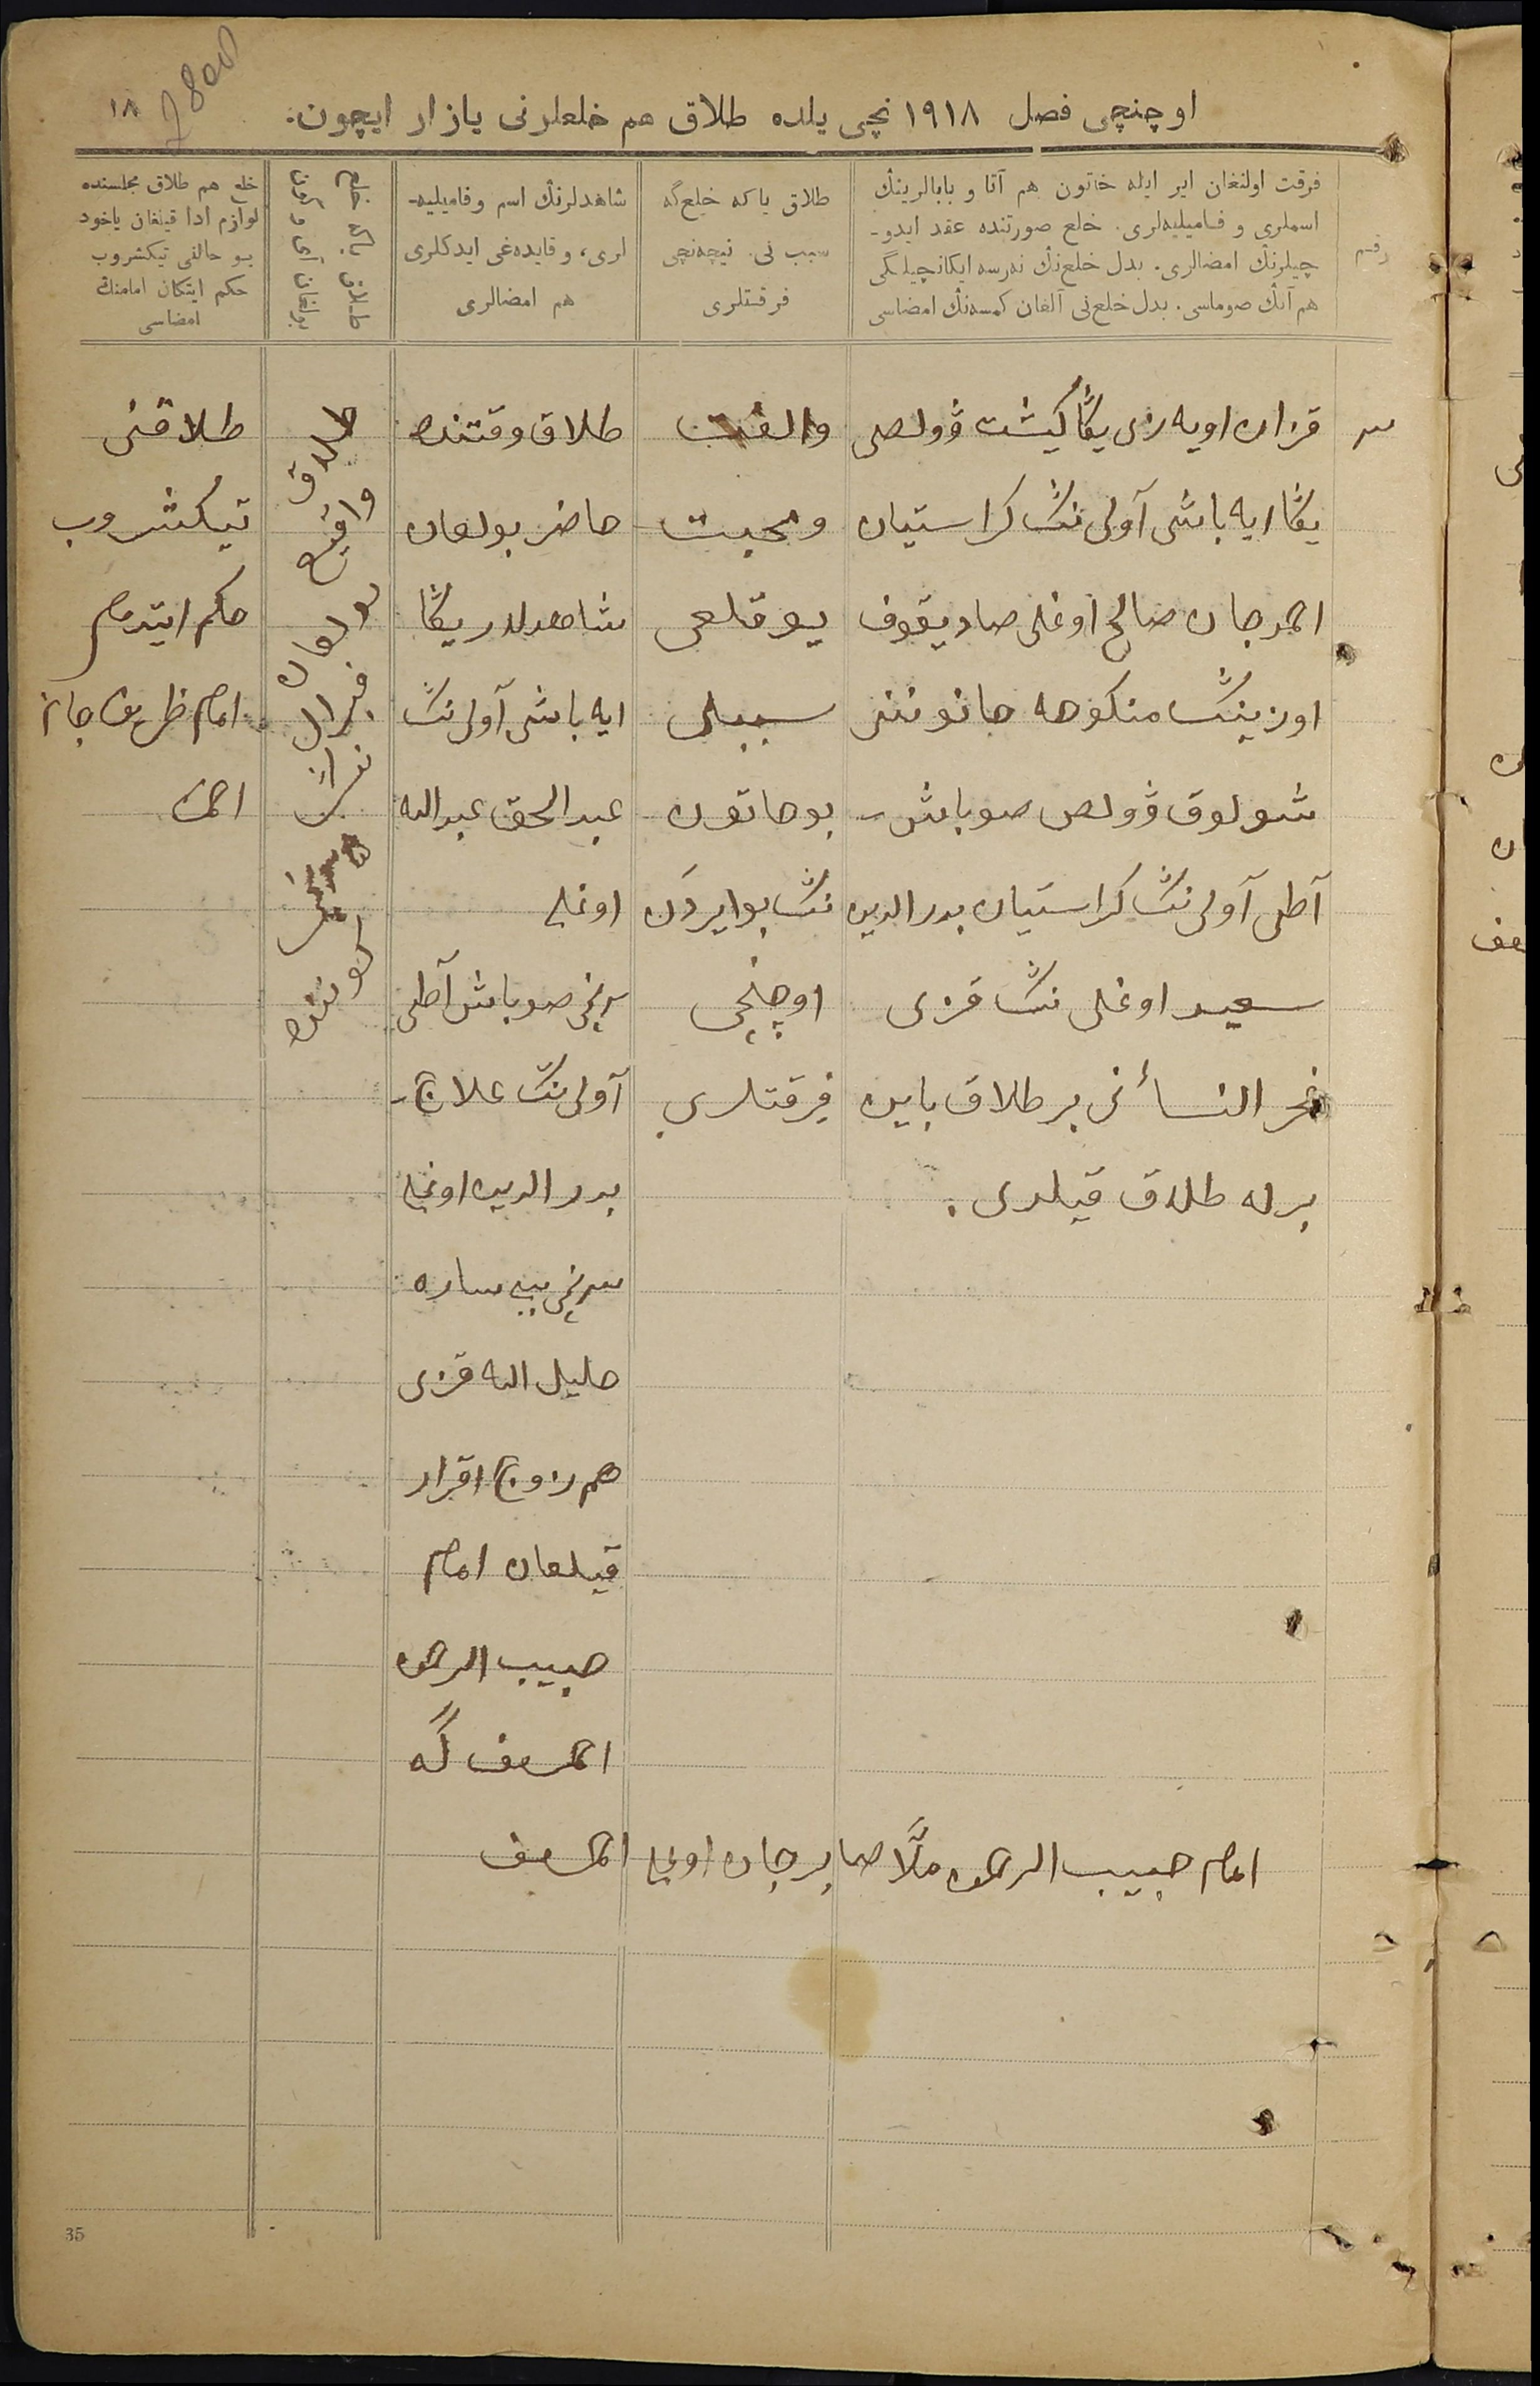 ١٨
اوچنچی فصل ١٩١٨ نچی یلده طلاق هم خلعلرنی یازار ایچون.
رقم
فرقت اولنغان ایر ایله خاتون هم آتا و بابالرینڭ
اسملری و فامیلیه‌لری. خلع صورتنده عقد ایدو-
چیلرنڭ امضالری. بدل خلع‌نڭ نه‌رسه ایکانچیلگی
هم آنڭ صوماسی. بدل خلع‌نی آلغان کمسه‌نڭ امضاسی
طلاق یا که خلع‌گه
سبب نی. نیچه‌نچی
فرقتلری
شاهدلرنڭ اسم وفامیلیه-
لری، و قایده‌غی ایدکلری
هم امضالری
طلاق یاکه خلع
بولغان آی و کون
خلع هم طلاق مجلسنده
لوازم ادا قیلغان یاخود
بو حالنی تیکشروب
حکم ایتکان امامنڭ
امضاسی
قزان اویه‌زی یڭا کیشت ڤولصی
یڭا ایه باشی آولی ننڭ کراستیان
احمدجان صالح اوغلی صادیقوف
اوزینڭ منکوحه خاتوننی
شولوق ڤولص صوباش-
آطی آولی ننڭ کراستیان بدرالدین
سعید اوغلی ننڭ قزی
فخر النسأنی بر طلاق باین
برله طلاق قیلدی.
والفت
ومحبت
یوقلغی
سببلی
بو خاتون
ننڭ بو ایردن
اوچنچی
فرقتلری
طلاق وقتنده
حاضر بولغان
شاهدلر یڭا
ایه باشی آولی ننڭ
عبدالحق عبدالله
اوغلی
٢نچی صوباش آطی
آولی ننڭ علاج-
بدرالدین اوغلی
٣نچی بیبی ساره
خلیل الله قزی
هم زوج اقرار
قیلغان امام
حبیب الرحمن
احمدوف گه
طلاق
واقع
بولغان
فیرال
كوننده
طلاقنی
تیکشروب
حکم ایتدم
امام ظریف جان
امام حبیب الرحمن ملّا صابرجان اوغلی احمدوف
35